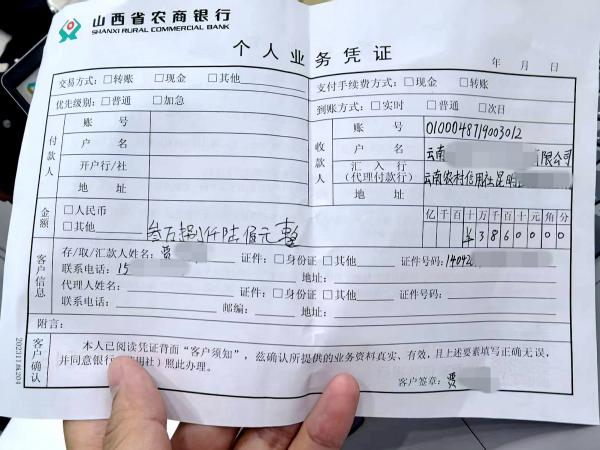 山西省农商银行
SHANXI RURAL COMMERCIAL BANK
个人业务凭证
年 月 日
交易方式：□转账 □现金 □其他 支付手续费方式：□现金 □转账
优先级别：□普通 □加急 到账方式：□实时 □普通 □次日
付款人 账号 收款人 账号 0100048719003012
户名 户名 云南 有限公司
开户行/社 汇入行(代理付款行) 云南农村信用社昆明
地址 地址
金额 □人民币 □其他 叁万捌仟陆佰元整 亿千百十万千百十元角分
¥3860000
客户信息 存/取/汇款人姓名：贾 证件：□身份证 □其他 证件号码：14042
联系电话：15 地址：
代理人姓名： 证件：□身份证 □其他 证件号码：
联系电话： 邮编： 地址：
附言：
客户确认 本人已阅读凭证背面“客户须知”，兹确认所提供的业务资料真实、有效，且上述要素填写正确无误，
并同意银行 用社）照此办理。
客户签章：贾